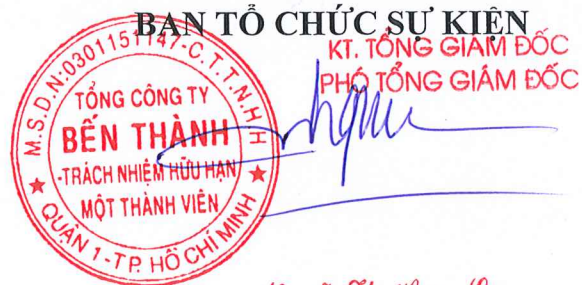 BAN TỔ CHỨC SỰ KIỆN
KT. TỔNG GIÁM ĐỐC
PHÓ TỔNG GIÁM ĐỐC
M.S.D.N:0301151147-C.T.T.N.H.H
TỔNG CÔNG TY
BẾN THÀNH
-TRÁCH NHIỆM HỮU HẠN
MỘT THÀNH VIÊN
QUẬN 1-T.P. HỒ CHÍ MINH